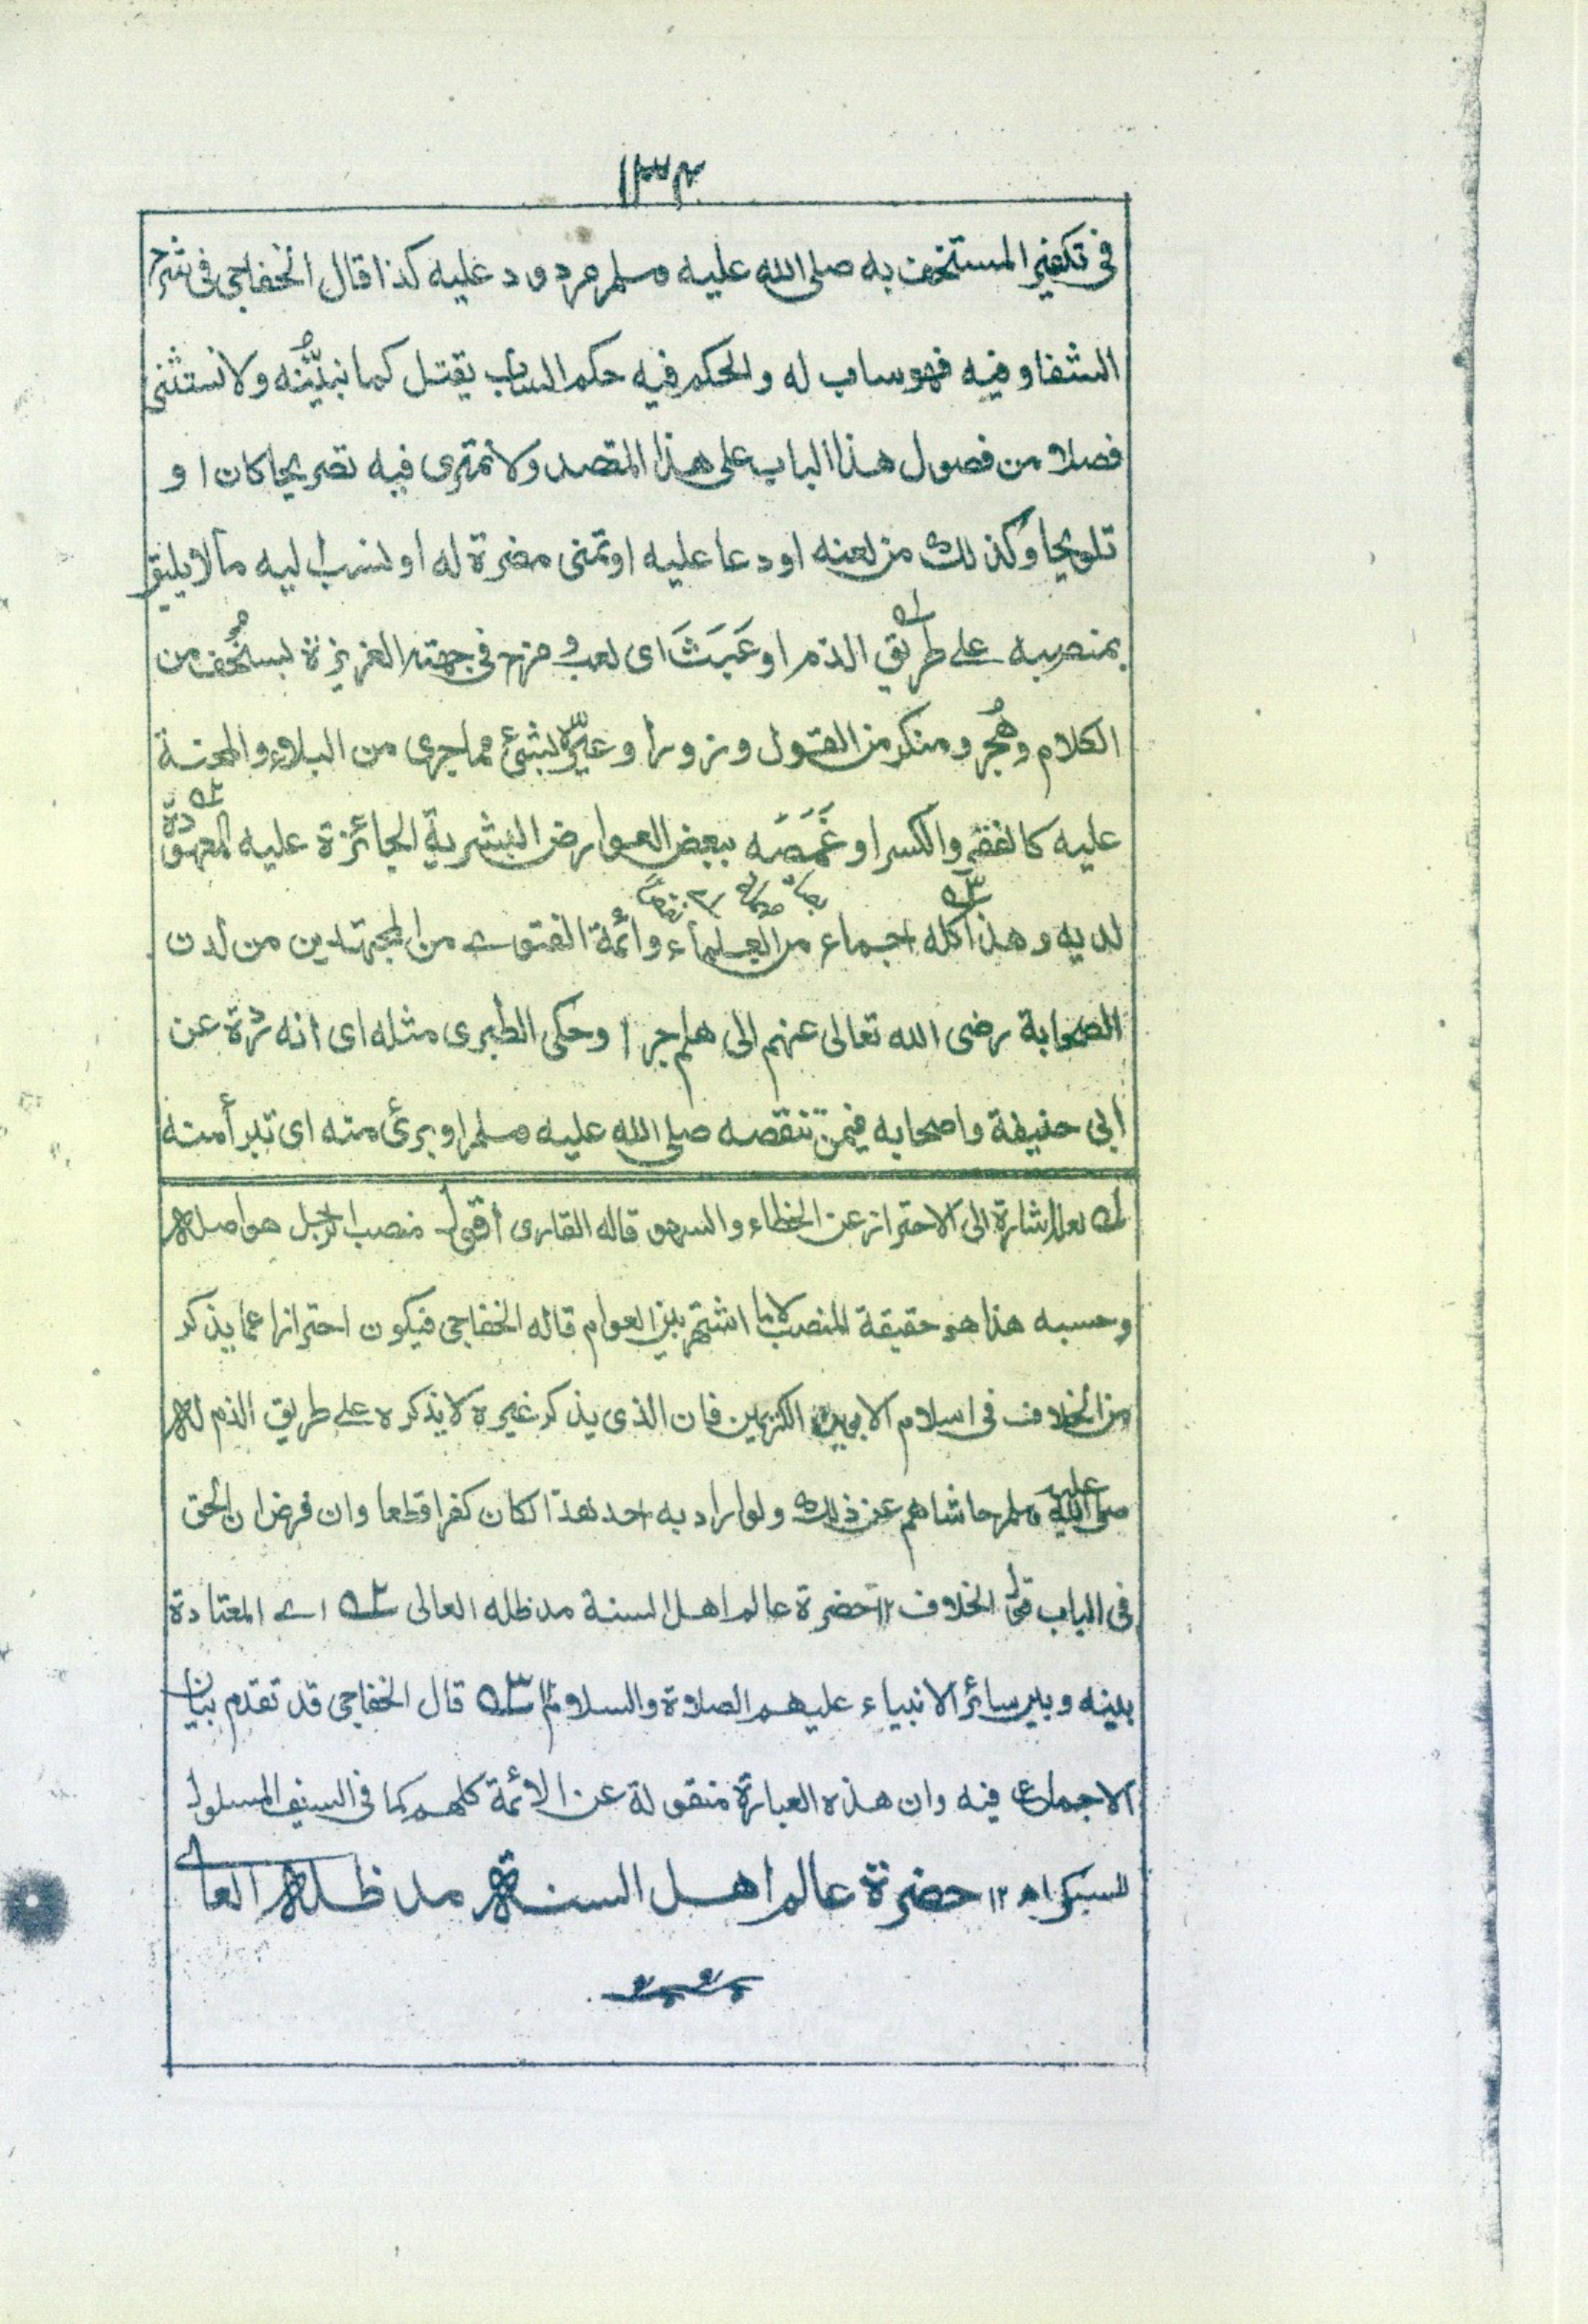 ١٣٤
في تكفير المستخف به صلى الله عليه وسلم مردود عليه كذا قال الخفاجي في شرح
الشفا وفيه فهو ساب له والحكم فيه حكم الساب يقتل كما نبيّنُه ولا نستثنى
فصلا من فصول هذا الباب على هذا المقصد ولا نمترى فيه تصريحا كان او
تلويحا وكذلك من لعنه او دعا عليه او تمنى مضرة له او نسب اليه ما لا يليق
بمنصبه على طريق الذم او عَبَثَ اى لعب و مزح في جهته العزيزة بسخُف من
الكلام وهُجر ومنكر من القول وزورا وعيّره بشئ مما جرى من البلاء والمحنة
عليه كالفقر والكسر او غَمَصَه ببعض العوارض البشرية الجائزة عليه المعهودة
لديه وهذا كله اجماع من العلماء وائمة الفتوے من المجتهدين من لدن
الصحابة رضى الله تعالى عنهم الى هلم جرا وحكى الطبرى مثله اى انه ردة عن
أبى حنيفة واصحابه فيمن تنقصه صلى الله عليه وسلم او برئ منه اى تبرأ منه
له لعله اشارة الى الاحتراز عن الخطاء والسهو قاله القارى أقول منصب الرجل هو اصله
وحسبه هذا هو حقيقة المنصب لا ما اشتهر بين العوام قاله الخفاجي فيكون احترازا عما يذكر
من الخلاف في اسلام الابوين الكريمين فان الذى يذكر غيره لا يذكره على طريق الذم له
صلى الله عليه وسلم حاشاهم عن ذلك ولو اراد به احد هذا لكان كفرا قطعا وان فرض ان الحق
في الباب قول الخلاف ١٢ حضرة عالم اهل السنة مد ظله العالى ٢ه اے المعتادة
بينه وبين سائر الانبياء عليهم الصلاة والسلام ١٢ ٣ه قال الخفاجي قد تقدم بيان
الاجماع فيه وان هذه العبارة منقولة عن الائمة كلهم كما في السيف المسلول
للسبكى اھ ١٢ حضرة عالم اهل السنة مد ظله العالے